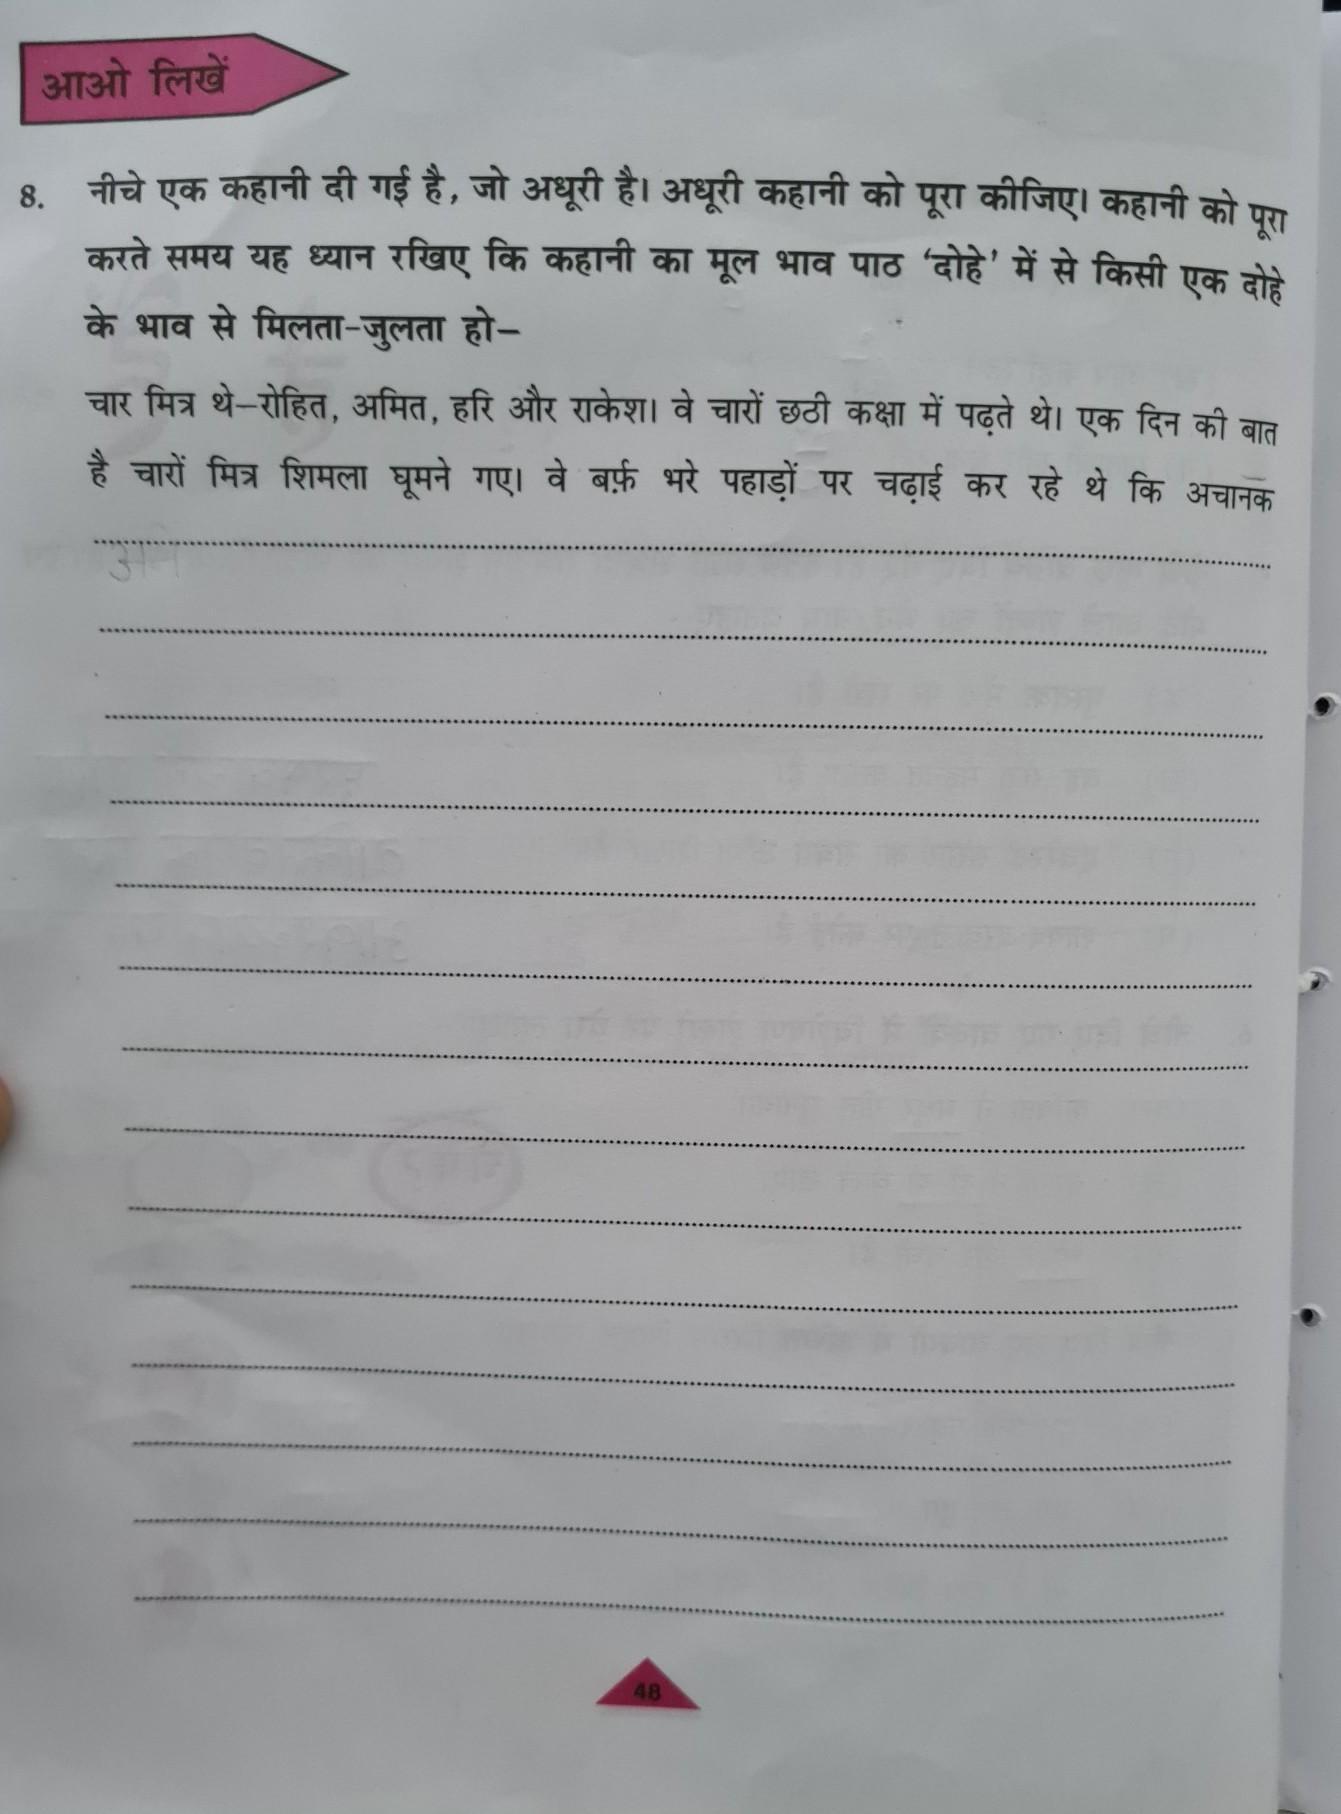 आओ लिखें
8. नीचे एक कहानी दी गई है, जो अधूरी है। अधूरी कहानी को पूरा कीजिए। कहानी को पूरा
करते समय यह ध्यान रखिए कि कहानी का मूल भाव पाठ ‘दोहे’ में से किसी एक दोहे
के भाव से मिलता-जुलता हो–
चार मित्र थे–रोहित, अमित, हरि और राकेश। वे चारों छठी कक्षा में पढ़ते थे। एक दिन की बात
है चारों मित्र शिमला घूमने गए। वे बर्फ़ भरे पहाड़ों पर चढ़ाई कर रहे थे कि अचानक
48